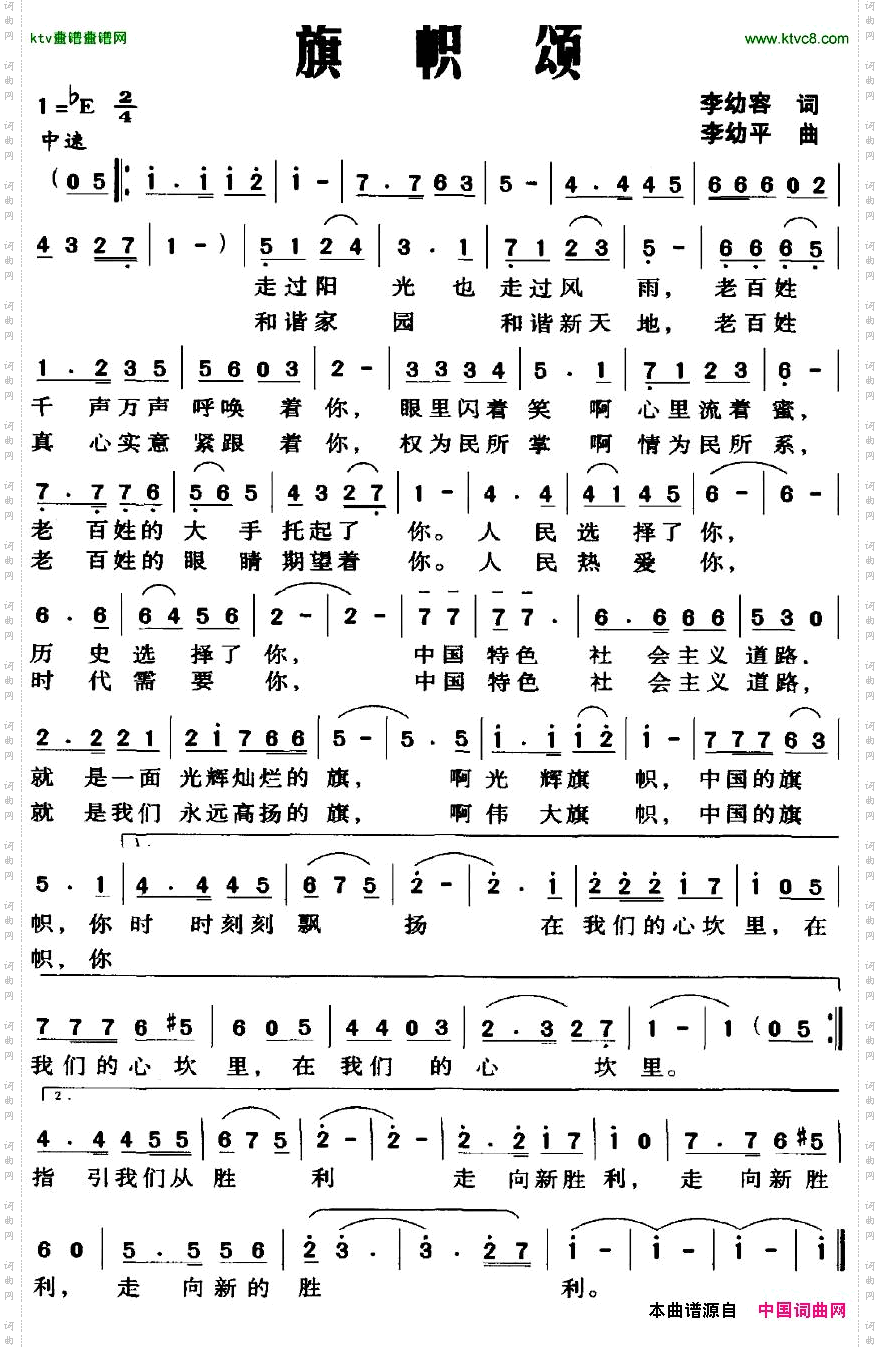 ktv盘锴盘锴网
www.ktvc8.com
旗 帜 颂
1=♭E 2/4
李幼容 词
中速
李幼平 曲
(0 5 ‖: i . i i 2 | i - | 7 . 7 6 3 | 5 - | 4 . 4 4 5 | 6 6 6 0 2 |
4 3 2 7 | 1 - ) | 5 1 2 4 | 3 . 1 | 7 1 2 3 | 5 - | 6 6 6 5 |
走过阳 光 也 走过风 雨, 老百姓
和谐家 园 和谐新天 地, 老百姓
1 . 2 3 5 | 5 6 0 3 | 2 - | 3 3 3 4 | 5 . 1 | 7 1 2 3 | 6 - |
千 声万声 呼唤 着 你, 眼里闪着 笑 啊 心里流着 蜜,
真 心实意 紧跟 着 你, 权为民所 掌 啊 情为民所 系,
7 . 7 7 6 | 5 6 5 | 4 3 2 7 | 1 - | 4 . 4 | 4 1 4 5 | 6 - | 6 - |
老 百姓的 大 手 托起了 你。 人 民 选 择了 你,
老 百姓的 眼 睛 期望着 你。 人 民 热 爱 你,
6 . 6 | 6 4 5 6 | 2 - | 2 - | 7 7 | 7 7 . | 6 . 6 6 6 | 5 3 0 |
历 史 选 择了 你, 中国 特色 社 会主义 道路.
时 代 需 要 你, 中国 特色 社 会主义 道路,
2 . 2 2 1 | 2 i 7 6 6 | 5 - | 5 . 5 | i . i | i i 2 | i - | 7 7 7 6 3 |
就 是一面 光辉灿烂的 旗, 啊 光 辉旗 帜, 中国的旗
就 是我们 永远高扬的 旗, 啊 伟 大旗 帜, 中国的旗
1.
5 . 1 | 4 . 4 4 5 | 6 7 5 | 2 - | 2 . i | 2 2 2 i 7 | i 0 5 |
帜, 你 时 时刻刻 飘 扬 在 我们的心坎 里, 在
帜, 你
7 7 7 6 #5 | 6 0 5 | 4 4 0 3 | 2 . 3 2 7 | 1 - | 1 (0 5 :‖
我们的心 坎 里, 在 我们 的 心 坎 里。
2.
4 . 4 4 5 5 | 6 7 5 | 2 - | 2 - | 2 . 2 i 7 | i 0 | 7 . 7 6 #5 |
指 引我们从 胜 利 走 向新胜 利, 走 向新胜
6 0 | 5 . 5 5 6 | 2 3 . | 3 . 2 7 | i - | i - | i - | i - ‖
利, 走 向新的 胜 利。
本曲谱源自 中国词曲网